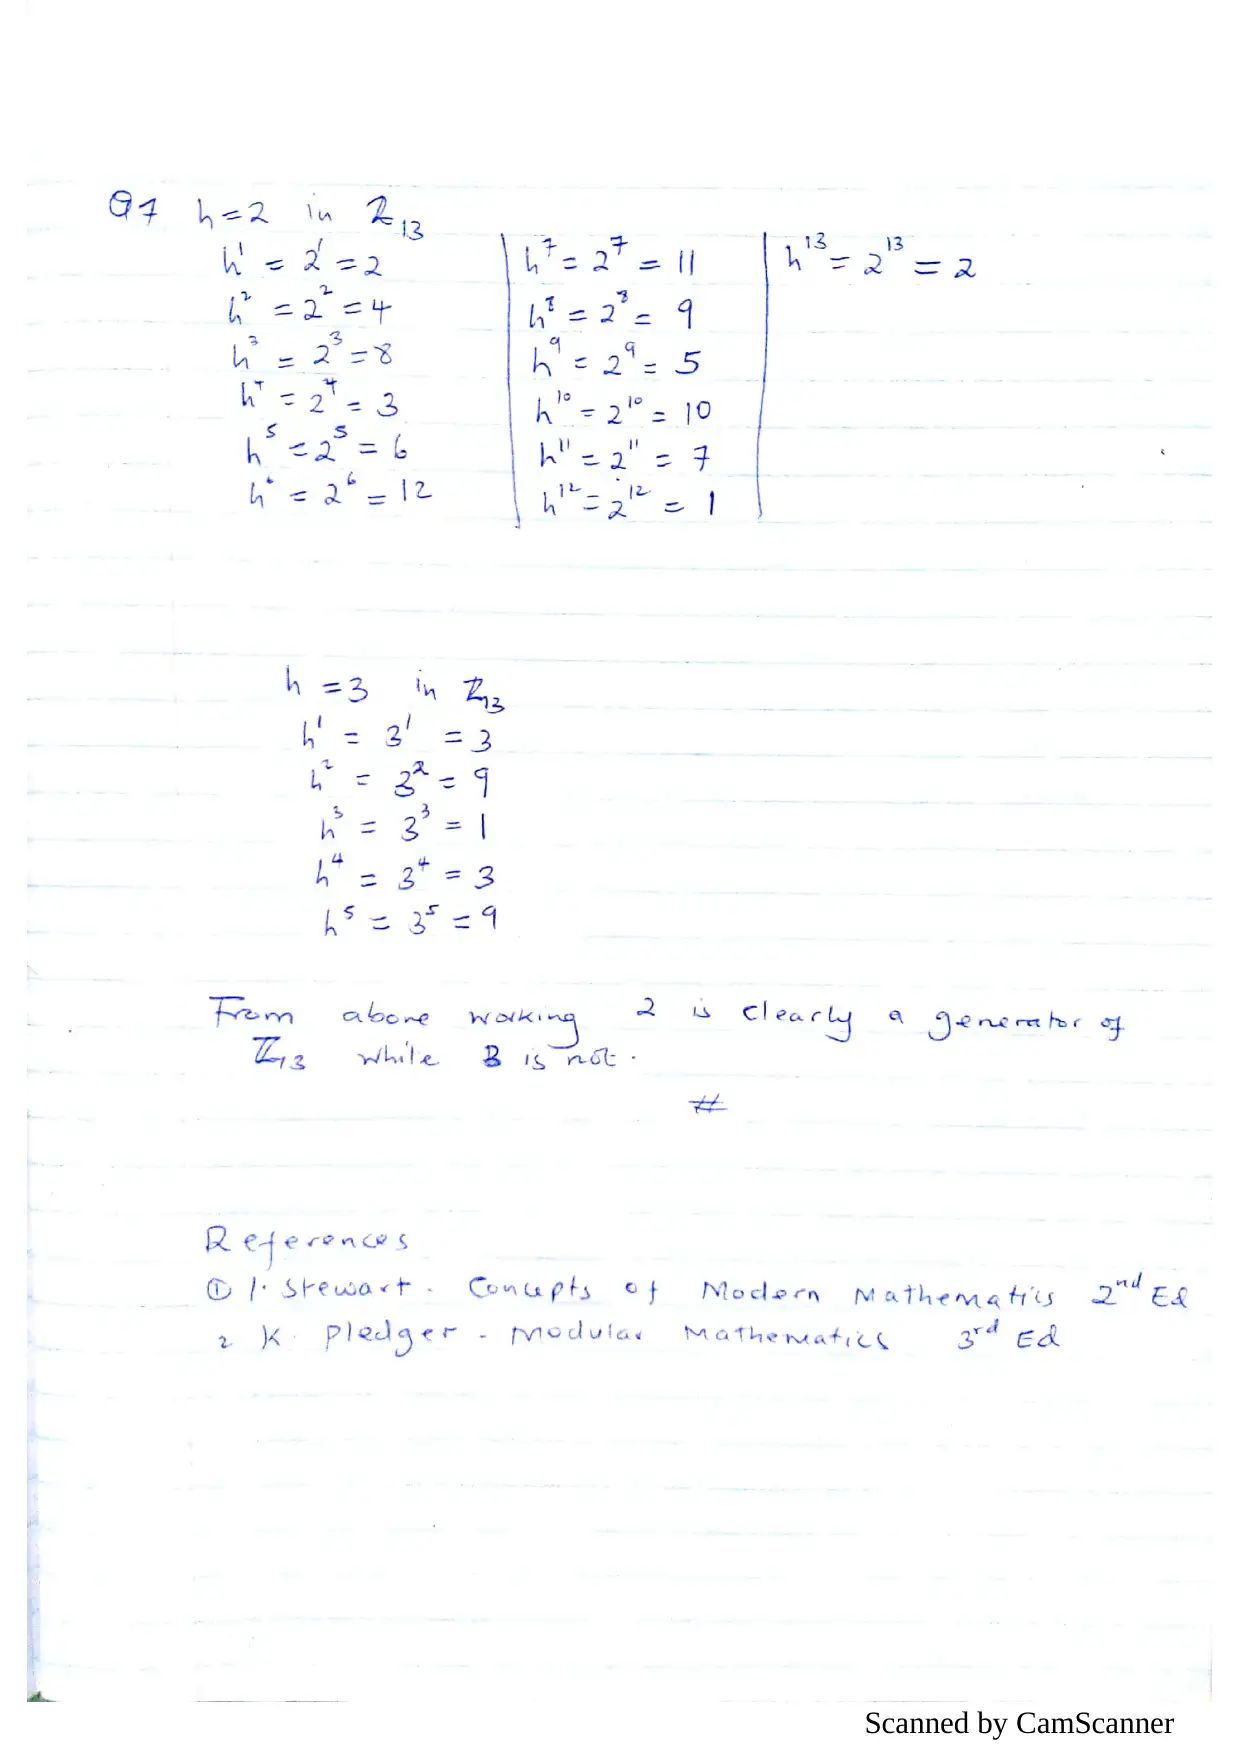 Q7 h=2 in Z₁₃
h¹ = 2¹ = 2
h² = 2² = 4
h³ = 2³ = 8
h⁴ = 2⁴ = 3
h⁵ = 2⁵ = 6
h⁶ = 2⁶ = 12
h⁷ = 2⁷ = 11
h⁸ = 2⁸ = 9
h⁹ = 2⁹ = 5
h¹⁰ = 2¹⁰ = 10
h¹¹ = 2¹¹ = 7
h¹² = 2¹² = 1
h¹³ = 2¹³ = 2
h = 3 in Z₁₃
h¹ = 3¹ = 3
h² = 3² = 9
h³ = 3³ = 1
h⁴ = 3⁴ = 3
h⁵ = 3⁵ = 9
From above working 2 is clearly a generator of
Z₁₃ while 3 is not.
#
References
① I. Stewart. Concepts of Modern Mathematics 2nd Ed
2 K. Pledger - Modular Mathematics 3rd Ed
Scanned by CamScanner